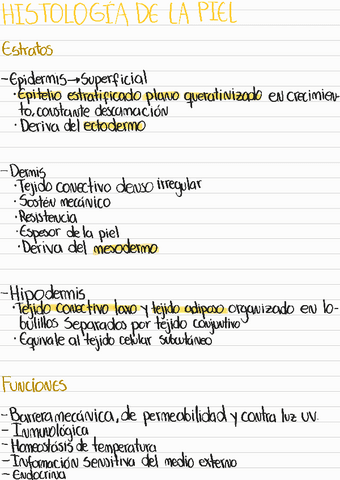 HISTOLOGÍA DE LA PIEL
Estratos
-Epidermis→Superficial
·Epitelio estratificado plano queratinizado en crecimien-
to, constante descamación
·Deriva del ectodermo
-Dermis
·Tejido conectivo denso irregular
·Sostén mecánico
·Resistencia
·Espesor de la piel
·Deriva del mesodermo
-Hipodermis
·Tejido conectivo laxo y tejido adiposo organizado en lo-
bulillos separados por tejido conjuntivo
·Equivale al tejido celular subcutáneo
Funciones
-Barrera mecánica, de permeabilidad y contra luz UV.
-Inmunológica
-Homeostasis de temperatura
-Información sensitiva del medio externo
-Endocrina